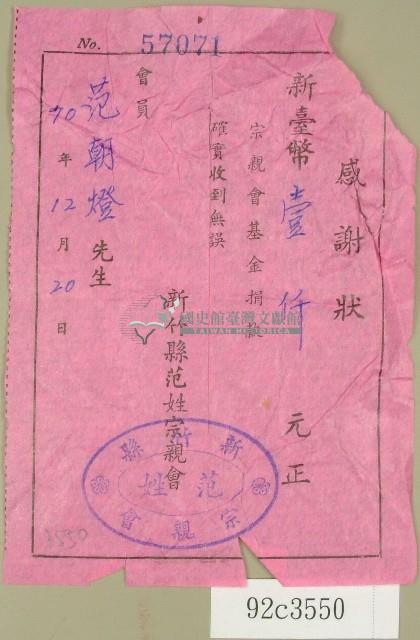 No. 57071
感謝狀
新臺幣壹仟元正
宗親會基金捐款
確實收到無誤
新竹縣范姓宗親會
會員
范朝燈先生
70年12月20日
國史館臺灣文獻館
TAIWAN HISTORICA
新竹縣
范姓
宗親會
92c3550